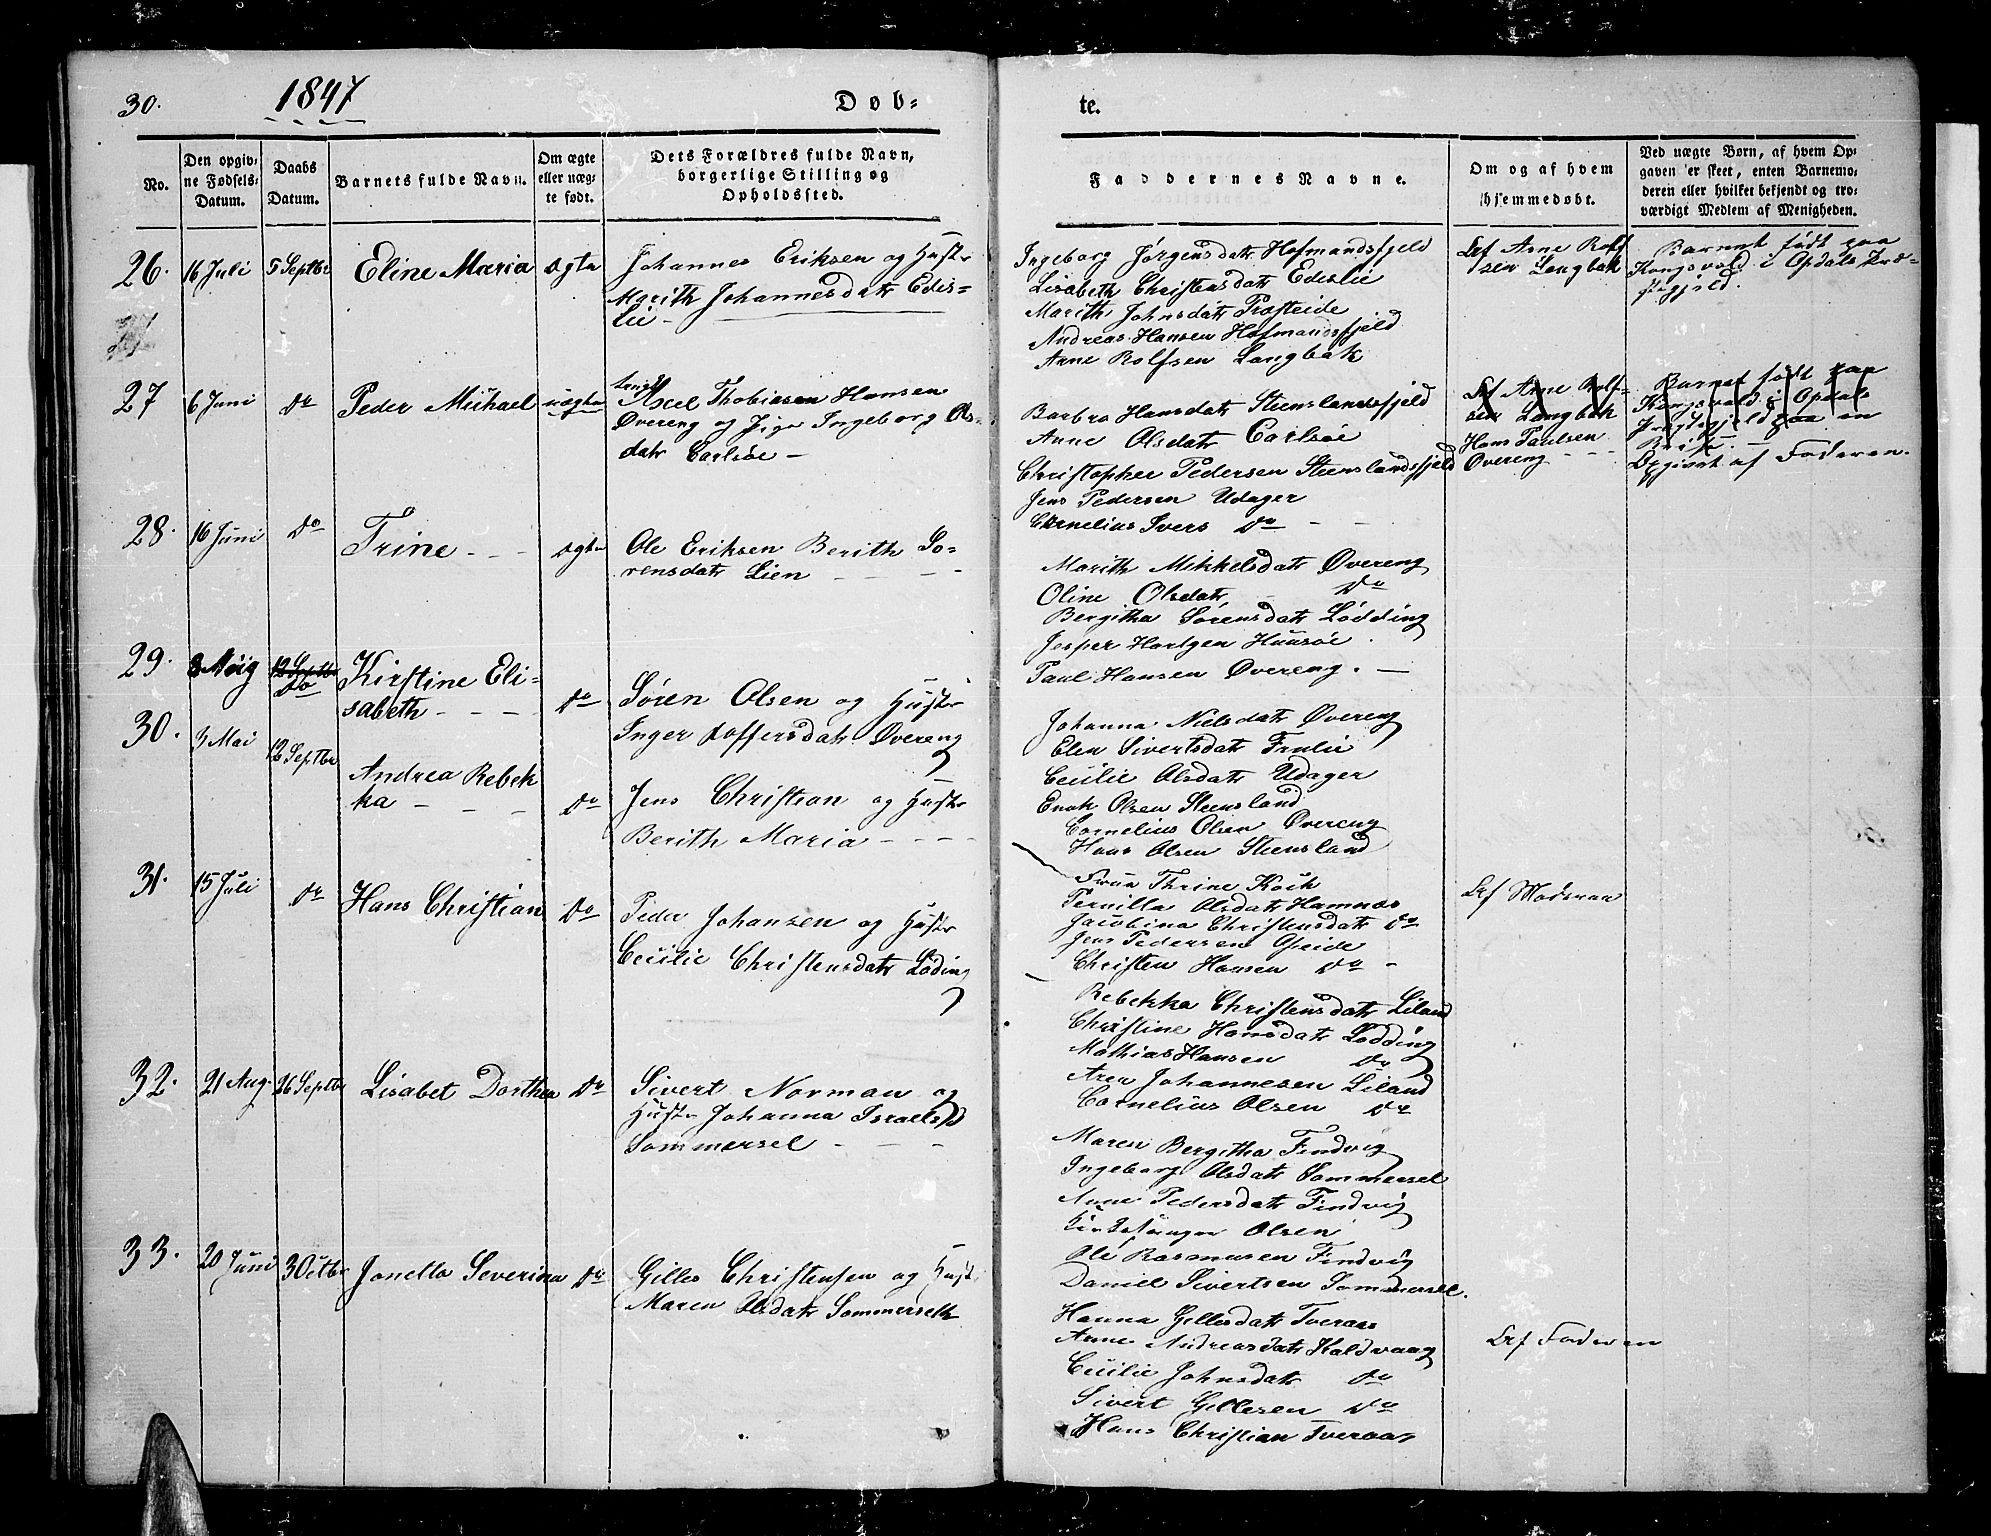 30.
1847
Døb-
te.
No.
Den opgiv-
ne Fødsels-
Datum.
Daabs
Datum.
Barnets fulde Navn.
Om ægte
eller uæg-
te født.
Dets Forældres fulde Navn,
borgerlige Stilling og
Opholdssted.
Faddernes Navne.
Om og af hvem
hjemmedøbt.
Ved uægte Børn, af hvem Op-
gaven er skeet, enten Barnemo-
deren eller hvilket bekjendt og tro-
værdigt Medlem af Menigheden.
26. 16 Juli 5 Septbr Eline Maria ægte
Johannes Eriksen og Hustr
Marith Johannesdatr Edis-
lie
Ingeborg Jørgensdatr Hofmandsfjeld
Lisabeth Christensdatr Edislie
Marith Johnsdatr Præsteide
Andreas Hansen Hofmandsfjeld
Arne Rolfsen Langbak
Af Arne Rolf
sen Langbak
Barnet født paa
Kongsvold i Opdals Præ-
stegjeld.
27 6 Juni do Peder Michael uægte
Axel Thobiasen Hansen
Øvereng og Pige Ingeborg Ols-
datr Carlsøe -
Barbra Hansdatr Steenslandsfjeld
Anne Olsdatr Carlsøe
Christopher Pedersen Steenslandsfjeld
Jens Pedersen Udager
Cornelius Ivers do
Af Arne Rolf-
sen Langbak
Hans Paulsen
Øvereng
Barnet født paa
Kongsvold i Opdals
Præstegjeld paa en
Opgivet af Faderen.
28. 16 Juni do Trine ægte
Ole Eriksen Berith So-
rensdatr Lien
Marith Mikkelsdatr Øvereng
Oline Olsdatr do
Bergitha Sørensdatr Lødding
Jesper Hartgen Huusøe
Paul Hansen Øvereng.
29. 12 Septbr
do
Kirstine Eli-
sabeth do
Søren Olsen og Hustr
Inger Toffersdatr Øvereng
Johanna Nielsdatr Øvereng
Elen Sivertsdatr Finlie
Cecilie Olsdatr Udager
Enok Olsen Steensland
Cornelius Olsen Øvereng
Hans Olsen Steensland
30. 3 Mai 12 Septbr
Andrea Rebek
ka do
Jens Christian og Hustr
Berith Maria
31. 15 Juli do Hans Christian do
Peder Johansen og Hustr
Cecilie Christensdatr Løding
Frue Thrine Koch
Pernilla Olsdatr Hamnæs
Jacobina Christensdatr do
Jens Pedersen Øseide
Christen Hansen do
Af Moderen
Rebekka Christensdatr Liland
Christine Hansdatr Lødding
Mathias Hansen do
Aren Johannesen Liland
Cornelius Olsen do
32. 21 Aug. 26 Septbr Lisabet Dorthea do
Sivert Norman og
Hustr Johanna Israelsd
Sommersel
Maren Bergitha Findvig
Ingeborg Olsdatr Sommersel
Anne Pedersdatr Findvig
Kirkesanger Olsen
Ole Rasmusen Findvig
Daniel Sivertsen Sommersel.
33. 20 Juni 3 Octbr Jonetta Severina do
Gilles Christensen og Hustr
Maren Olsdatr Sommerseth
Hanna Gillesdatr Tveraas
Anne Andreasdatr Koldvaag
Cecilie Johnsdatr do
Sivert Gillesen do
Hans Christian Tveraas
Af Faderen